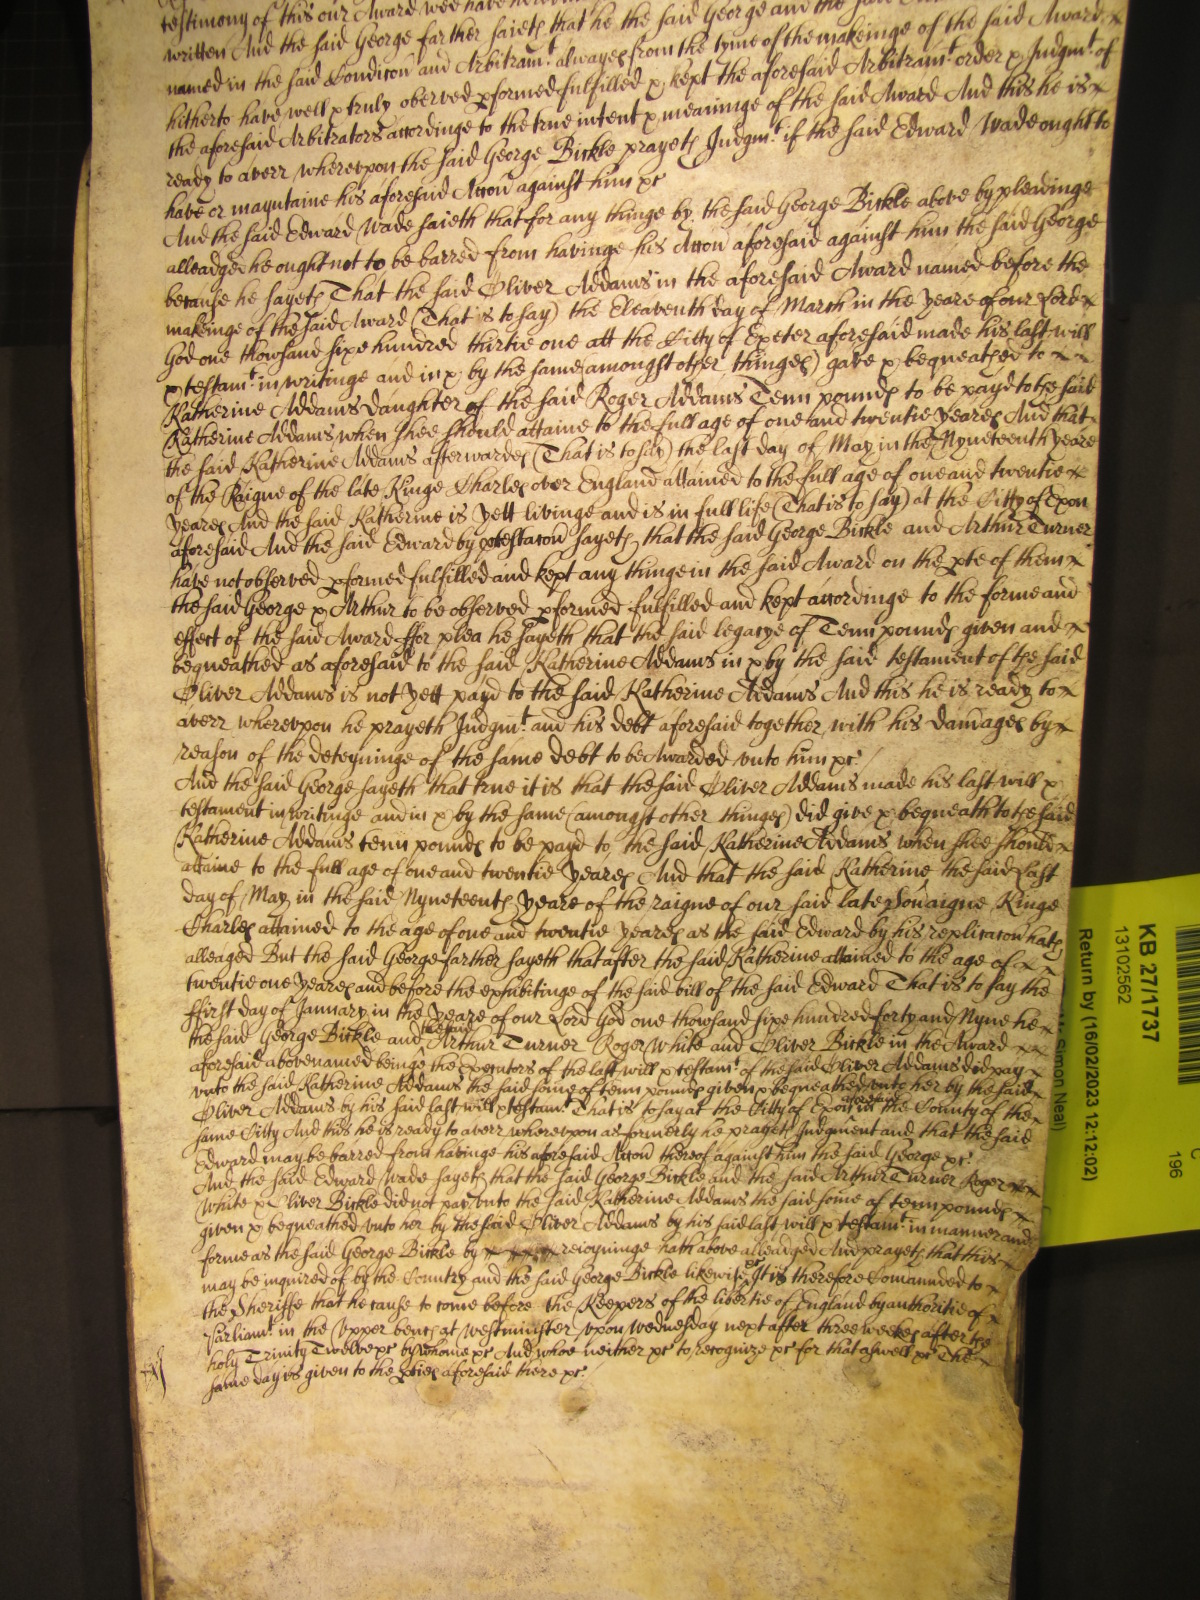 testimony of this our Award wee have
written And the said George farther saieth that he the said George and the said
named in the said Condicon and Arbitramt. alwayes from the tyme of the makeinge of the said Award
hitherto have well & truly observed pformed fulfilled & kept the aforesaid Arbitramt. order & Judgmt. of
the aforesaid Arbitrators accordinge to the true intent & meaninge of the said Award And this he is
ready to averr wherevpon the said George Bickle prayeth Judgmt. if the said Edward Wade ought to
have or mayntaine his aforesaid Accon against him &c
And the said Edward Wade saieth that for any thinge by the said George Bickle above by pleadinge
alleadged he ought not to be barred from havinge his Accon aforesaid against him the said George
because he sayeth That the said Oliver Addams in the aforesaid Award named before the
makeinge of the said Award (That is to say) the Eleaventh day of March in the yeare of our Lord
God one thowsand sixe hundred thirtie one att the Citty of Exeter aforesaid made his last will
& testamt. in writinge and in & by the same (amongst other thinges) gave & bequeathed to
Katherine Addams daughter of the said Roger Addams Tenn pounds to be payd to the said
Katherine Addams when shee should attaine to the full age of one and twentie yeares And that
the said Katherine Addams afterwardes (That is to say) the last day of May in the Nyneteenth yeare
of the Raigne of the late Kinge Charles over England attained to the full age of one and twentie
yeares And the said Katherine is yett livinge and is in full life (That is to say) at the Citty of Exon
aforesaid And the said Edward by ptestacon sayeth that the said George Bickle and Arthur Turner
have not observed pformed fulfilled and kept any thinge in the said Award on the pte of them
the said George & Arthur to be observed pformed fulfilled and kept accordinge to the forme and
effect of the said Award ffor plea he sayeth that the said legacye of Tenn pounds given and
bequeathed as aforesaid to the said Katherine Addams in & by the said testament of the said
Oliver Addams is not yett payd to the said Katherine Addams And this he is ready to
averr wherevpon he prayeth Judgmt. and his debt aforesaid together with his damages by
reason of the deteyninge of the same debt to be Awarded vnto him &c
And the said George sayeth that true it is that the said Oliver Addams made his last will &
testament in writinge and in & by the same (amongst other thinges) did give & bequeath to the said
Katherine Addams tenn pounds to be payd to the said Katherine Addams when shee should
attaine to the full age of one and twentie yeares And that the said Katherine the said last
day of May in the said Nyneteenth yeare of the raigne of our said late Sovaigne Kinge
Charles attained to the age of one and twentie yeares as the said Edward by his replicacon hath
alleaged But the said George farther sayeth that after the said Katherine attained to the age of
twentie one yeares and before the exhibitinge of the said bill of the said Edward That is to say the
ffirst day of January in the yeare of our Lord God one thowsand sixe hundred forty and Nyne he
the said George Bickle and the said Arthur Turner Roger White and Oliver Bickle in the Award
aforesaid abovenamed beinge the Executors of the last will & testamt. of the said Oliver Addams did pay
vnto the said Katherine Addams the said some of tenn pounds given & bequeathed vnto her by the said
Oliver Addams by his said last will & testamt. That is to say at the Citty of Exon aforesaid in the County of the
same Citty And this he is ready to averr wherevpon as formerly he prayeth Judgment and that the said
Edward may be barred from havinge his aforesaid Accon thereof against him the said George &c
And the said Edward Wade sayeth that the said George Bickle and the said Arthur Turner Roger
White & Oliver Bickle did not pay vnto the said Katherine Addams the said some of tenn pounds
given & bequeathed vnto her by the said Oliver Addams by his said last will & testamt. in manner and
forme as the said George Bickle by reioyninge hath above alleadged And prayeth that this
may be inquired of by the Country and the said George Bickle likewise &c It is therefore Comaunded to
the Sheriffe that he cause to come before the Keepers of the libertie of England by authoritie of
Parliamt. in the Vpper bench at Westminster vpon Wednesday next after three weekes after the
holy Trinity Twelve &c by whome &c And whoe neither &c to recognize &c for that aswell &c The
same day is given to the pties aforesaid there &c
KB 27/1737
13102562
Return by (16/02/2023 12:12:02)
Simon Neal)
C
196